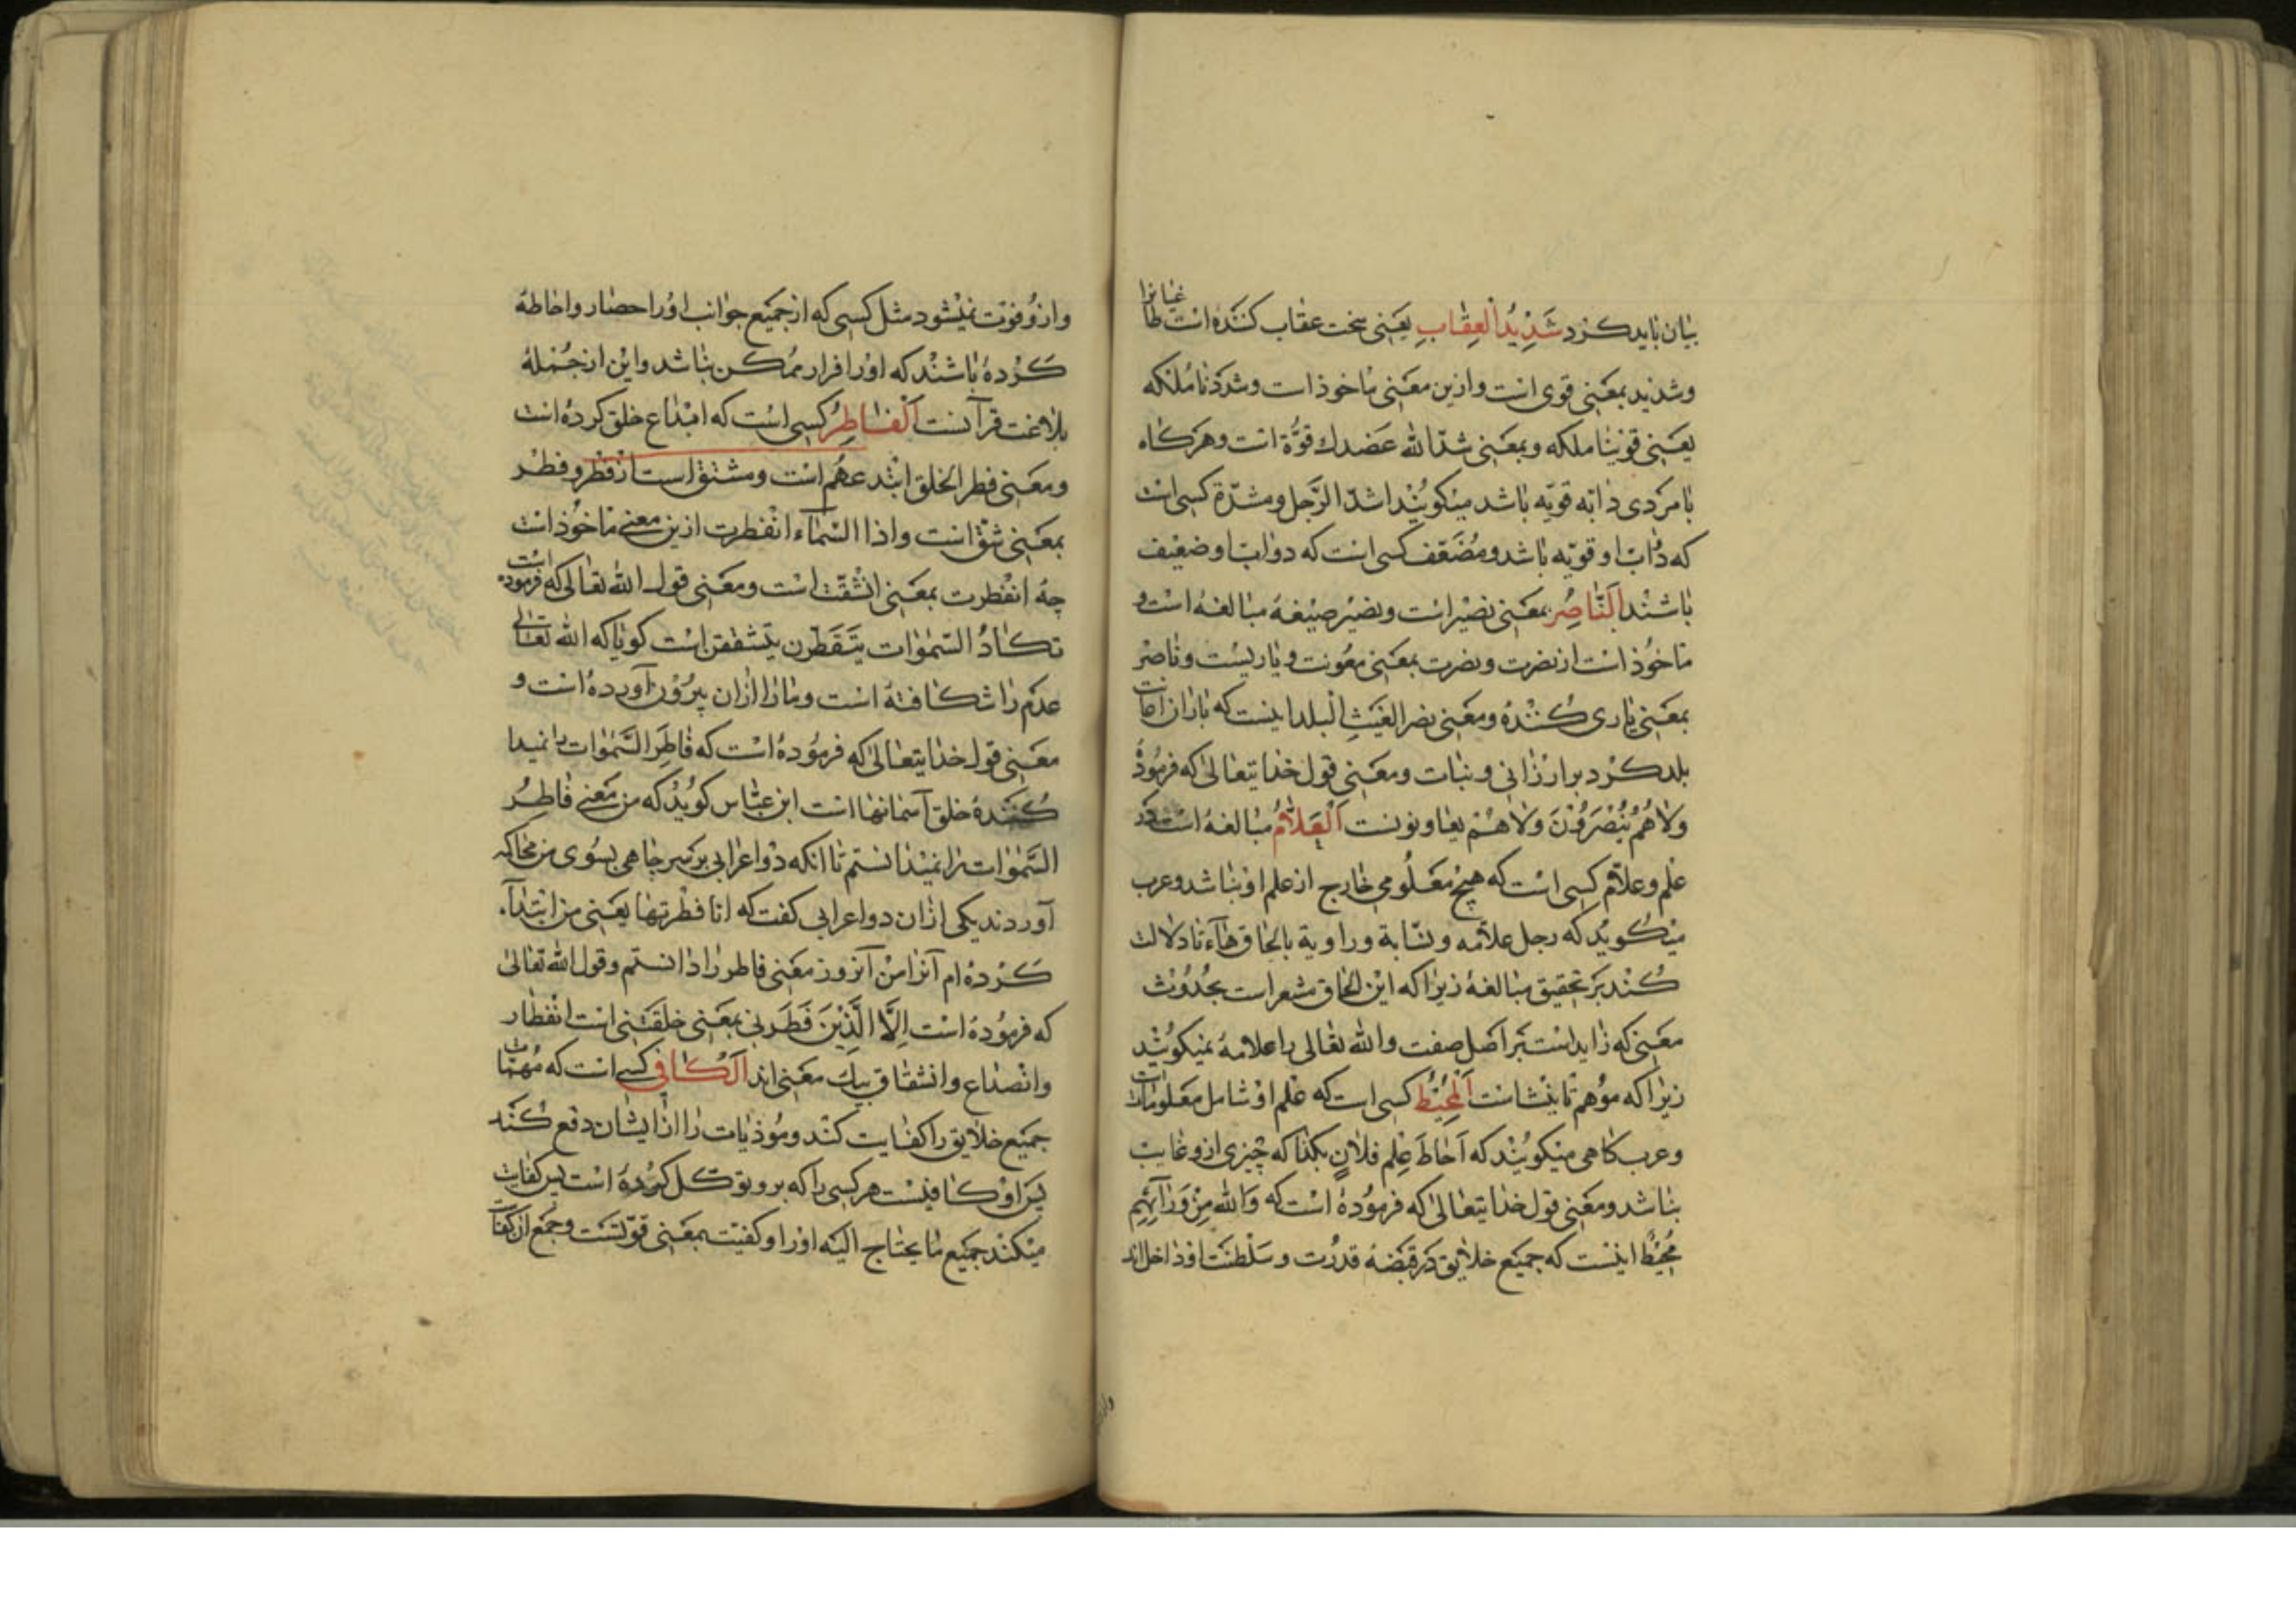 بیان باید کرد شَدِیدُ الْعِقٰابِ یعنی سخت عقاب کننده است طاغیانرا
وشدید بمعنی قوی است وازین معنی ماخوذ است وشددنا ملکه
یعنی قوینا ملکه وبمعنی شدّ الله عضدك قوّة است وهرکاه
با مردی دابه قویّه باشد میکویند اشدّ الرّجل ومشدّة کسی است
که دوابّ او قویّه باشد ومُضعّف کسی است که دوابّ او ضعیف
باشند اَلنّاصِرُ بمعنی نصیر است ونصیر صیغهٔ مبالغه است و
ماخوذ است از نصرت ونصرت بمعنی معونت ویاریست وناصر
بمعنی یاری کننده ومعنی نصر الغیثِ البلد اینست که باران اعانت
بلد کرد بر ارزانی و نبات ومعنی قول خدایتعالیٰ که فرموده
ولاهُم یُنْصَرُوْنَ ولاهم یعاونونست اَلْعَلّامُ مبالغه است در
علم وعلّام کسی است که هیچ معلومی خارج از علم او نباشد وعرب
میکوید که رجل علّامه ونسّابة وراویة بالحاق هاء تا دلالت
کند بر تحقیق مبالغه زیرا که این الحاق مشعر است بحدوث
معنی که زاید است بر اصل صفت والله تعالی را علامه نمیکویند
زیرا که موهم تانیث است اَلْمُحِیْطُ کسی است که علم او شامل معلوماترا
وعرب کاهی میکویند که اَحاطَ عِلم فلانٍ بکذا که چیزی از و غایب
نباشد ومعنی قول خدایتعالیٰ که فرموده است که وَالله مِنْ وَرٰآئِهِم
مُحِیْطٌ اینست که جمیع خلایق در قبضهٔ قدرت وسلطنت او داخل اند
وازو فوت نمیشود مثل کسی که از جمیع جوانب او را حصار واحاطه
کرده باشند که او را فرار ممکن نباشد واین از جُملهٔ
بلاغت قرآنست اَلْفٰاطِرُ کسی است که ابتداع خلق کرده است
ومعنی فطر الخلق ابتدعهم است ومشتق است از فطر وفطر
بمعنی شقّ است واذا السّماء انفطرت ازین معنی ماخوذ است
چه انفطرت بمعنی انشقّت است ومعنی قول الله تعالی که فرموده است
تکادُ السّمٰوات یتفطّرن یتشققن است کویا که الله تعالی
عدم را شکافته است ومارا ازان بیرون آورده است و
معنی قول خدایتعالیٰ که فرموده است که فاطِرَ السّمٰوات را نمیدا
کنندهٔ خلق آسمانها است ابن عبّاس کوید که من معنی فاطرُ
السّمٰوات را نمیدانستم تا انکه دو اعرابی بر سر چاهی بسوی من محاکمه
آوردند یکی ازان دو اعرابی کفت که انا فطرتها یعنی من ابتداء
کرده ام آنرا من آنروز معنی فاطر را دانستم وقول الله تعالیٰ
که فرموده است اِلَّا الَّذِیْنَ فَطَرَنی بمعنی خلقنی است انفطار
وانصداع وانشقاق بیك معنی اند اَلْکٰافی کسی است که مهمّات
جمیع خلایق را کفایت کند وموذیات را از ایشان دفع کند
پس او کافیست هر کسی را که برو توکل کرده است پس کفایت
میکند جمیع ما یحتاج الیه او را و کفیت بمعنی قوتست وجمع ان کفات